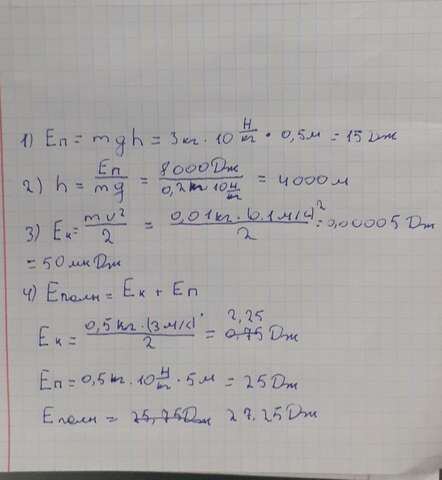 1) Eп = mgh = 3кг · 10 Н/кг · 0,5м = 15 Дж
2) h = Eп/mg = 8000Дж/0,2кг·10Н/кг = 4000 м
3) Eк = mv²/2 = 0,01кг·(0,1м/с)²/2 = 0,00005 Дж
= 50 мкДж
4) Eполн = Eк + Eп
Eк = 0,5кг·(3м/с)²/2 = 0,75 2,25 Дж
Eп = 0,5кг · 10 Н/кг · 5м = 25Дж
Eполн = 25,75Дж 27.25 Дж